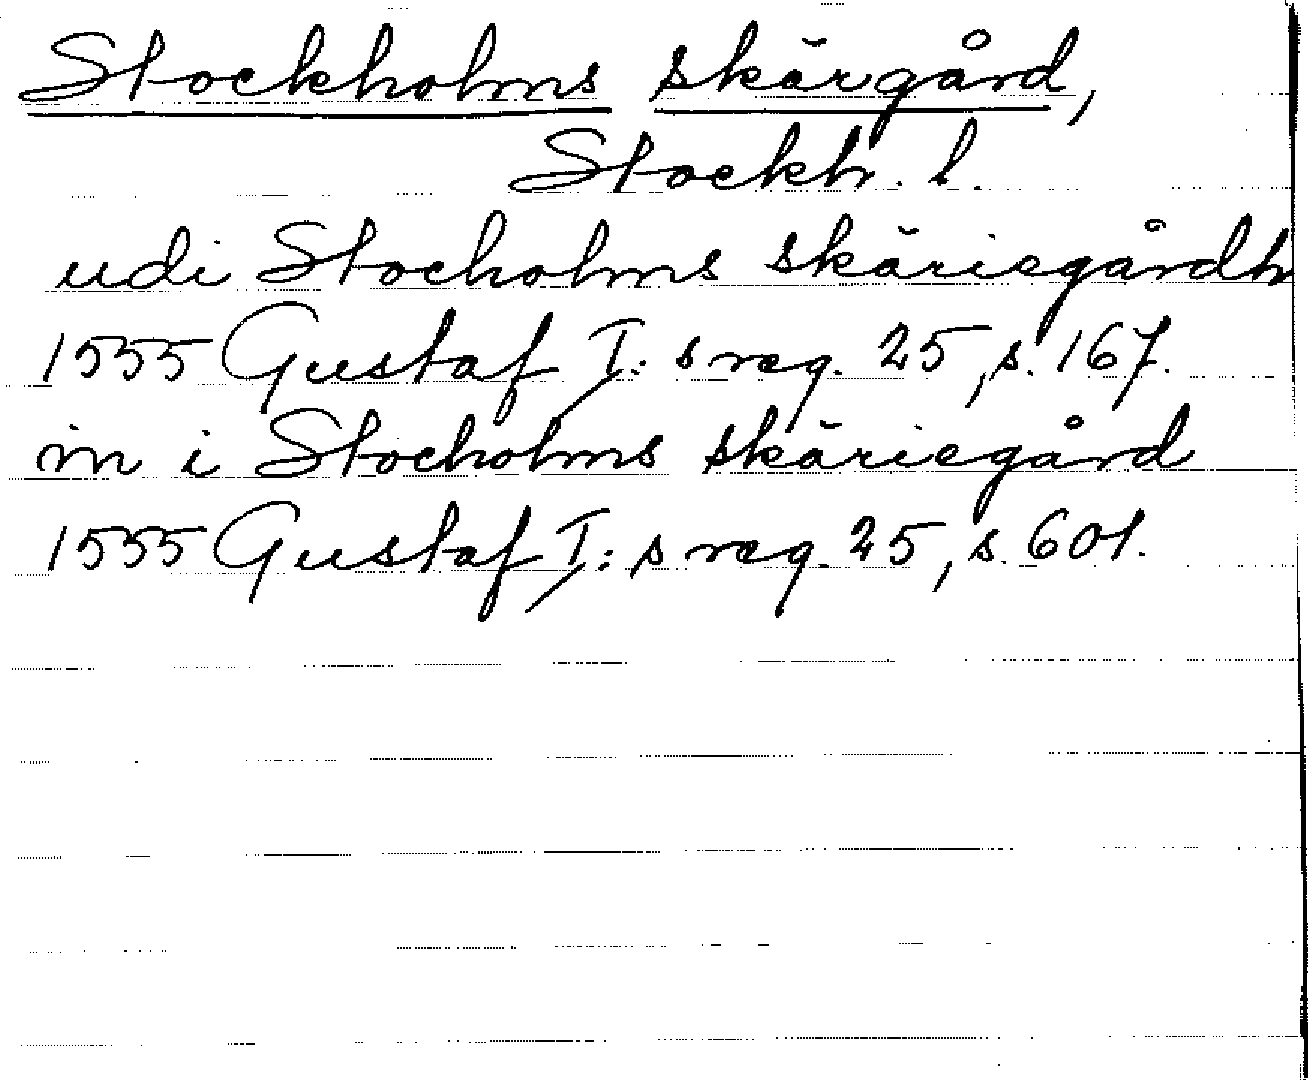 Stockholms skärgård,
Stockh. l.
udi Stocholms skäriegårdh
1555 Gustaf I:s reg. 25, s. 167.
in i Stocholms skäriegård
1555 Gustaf I:s reg. 25, s. 601.